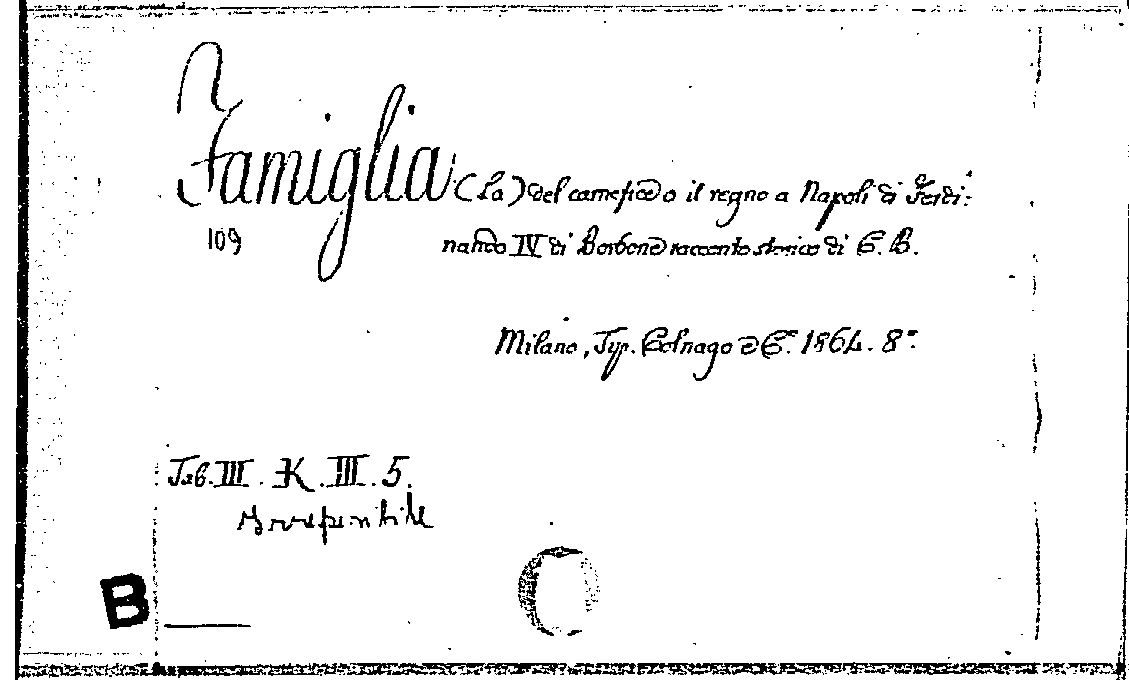 Famiglia (La) del carnefice o il regno a Napoli di Ferdi:
109
nando IV di Borbone racconto storico di C. B.
Milano, Typ. Colnago e C. 1864. 8°.
Tab. III. K. III. 5.
Irreperibile
B